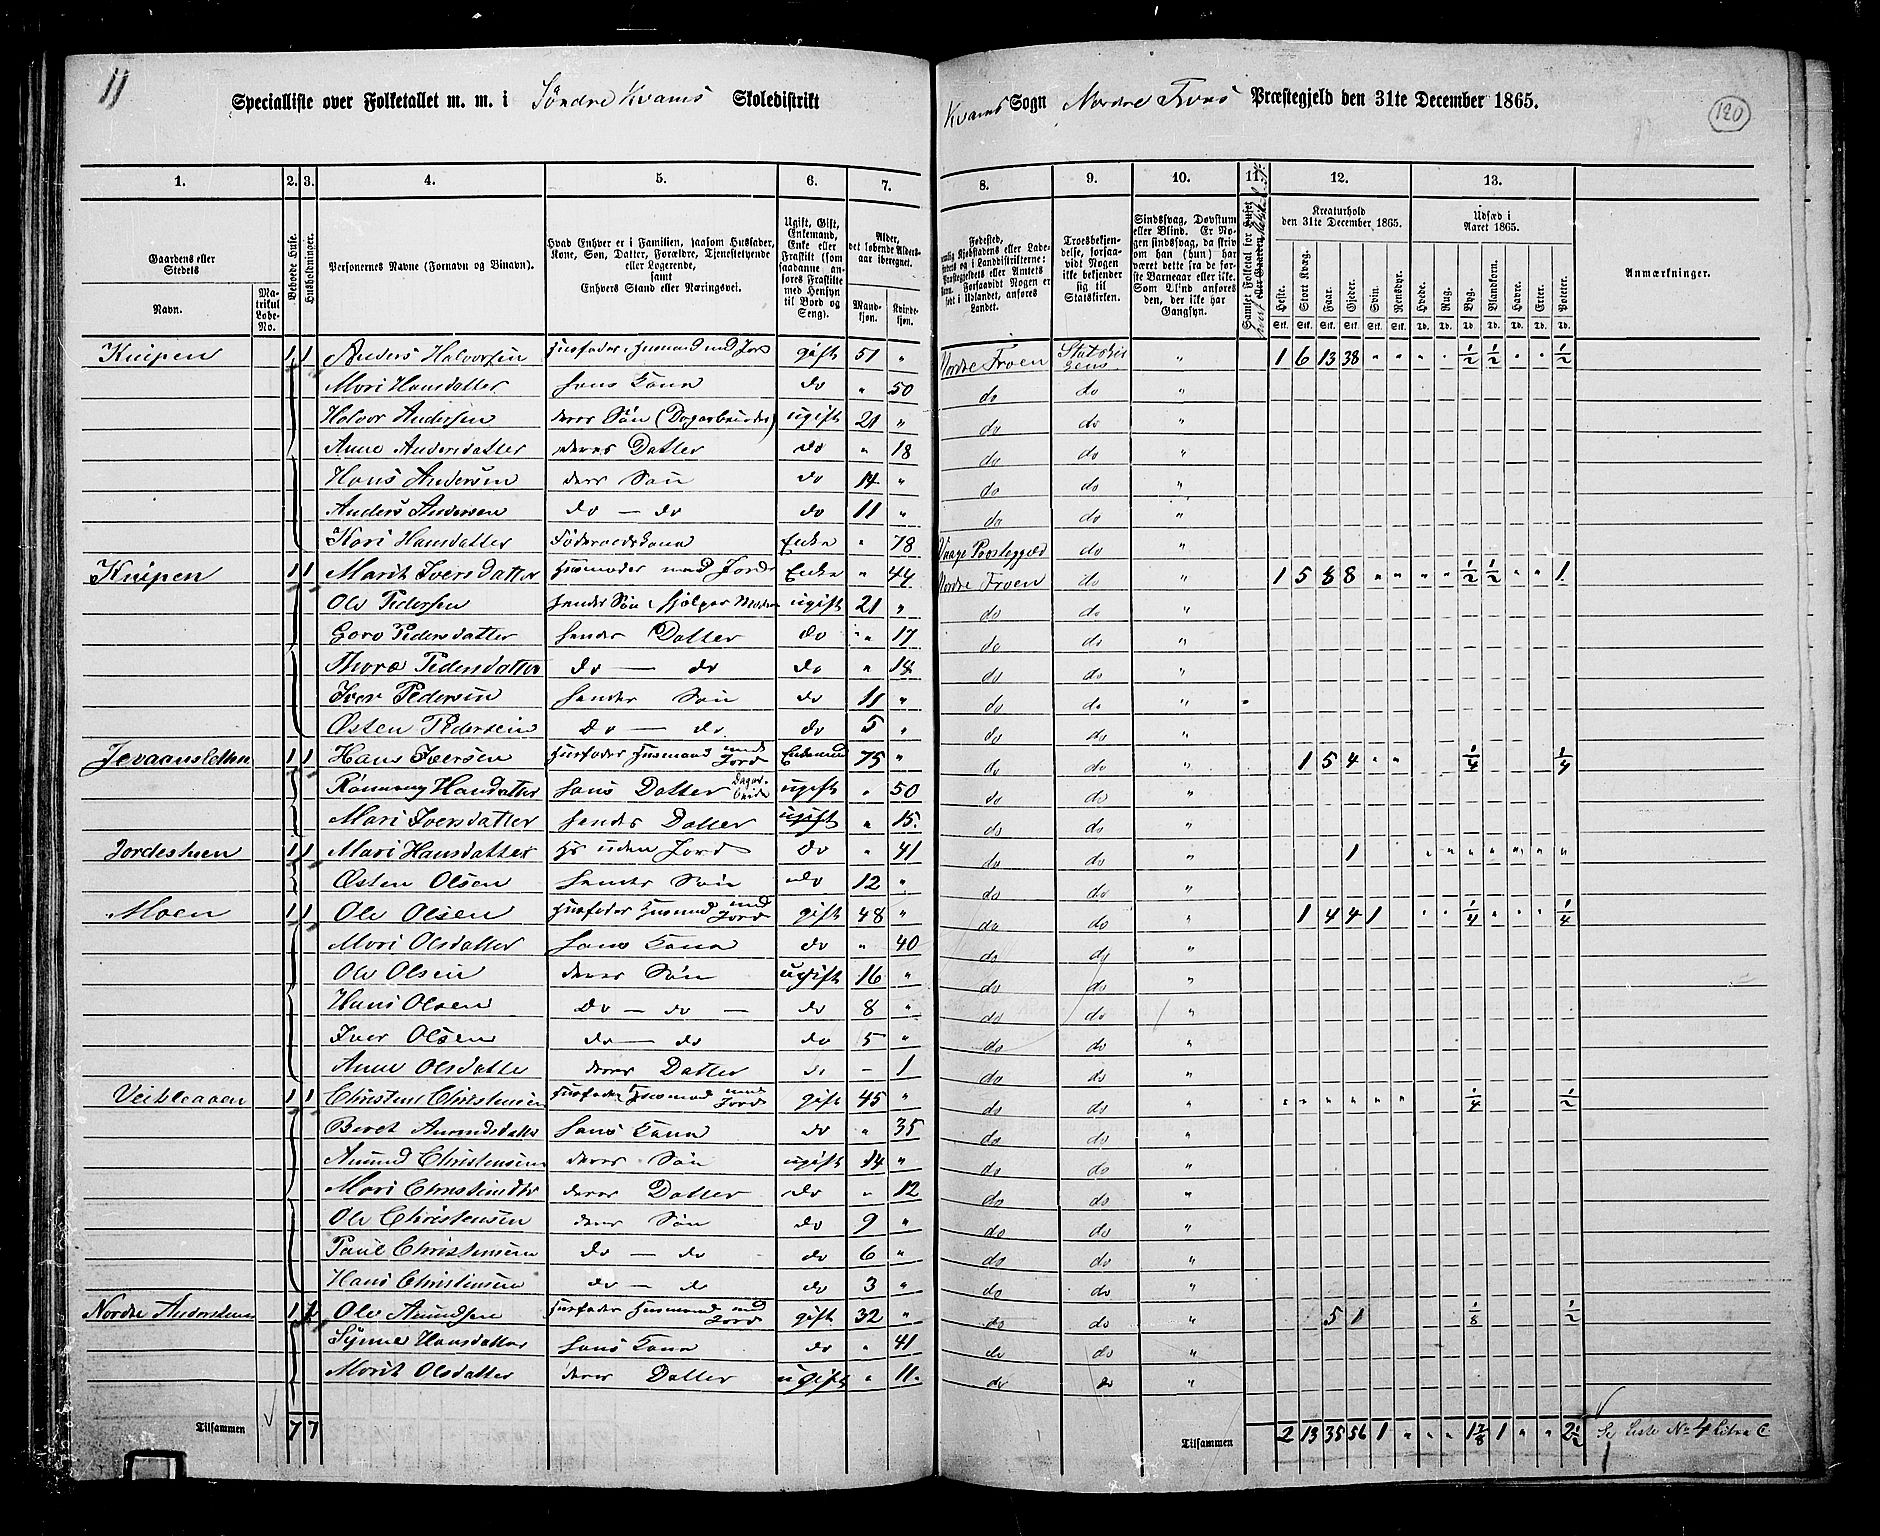 11
Specialliste over Folketallet m. m. i Söndre Kvams Skoledistrikt
Kvams Sogn Nordre Frons Præstegjeld den 31te December 1865.
120
1. 2. 3. 4. 5. 6. 7. 8. 9. 10. 11. 12. 13.
Gaardens eller Stedets
Navn.
Matrikul Løbe-No.
Beboede Huse.
Husholdninger.
Personernes Navne (Fornavn og Binavn).
Hvad Enhver er i Familien, saasom Husfader, Kone, Søn, Datter, Forældre, Tjenestetyende eller Logerende,
samt
Enhvers Stand eller Næringsvei.
Ugift, Gift, Enkemand, Enke eller Fraskilt (som saadanne anføres Fraskilte med Hensyn til Bord og Seng).
Alder, det løbende Aldersaar iberegnet.
Mandkjøn. Kvindekjøn.
Fødested,
Troesbekjendelse, forsaavidt Nogen ikke bekjender sig til Statskirken.
Sindssvag, Døvstum eller Blind.
Kreaturhold den 31te December 1865.
Heste. Stort Kvæg. Faar. Gjeder. Svin. Rensdyr.
Udsæd i Aaret 1865.
Hvede. Rug. Byg. Blandkorn. Havre. Erter. Poteter.
Anmærkninger.
Knipen 1 1 Anders Halvorsen Husfader, Husmand med Jord gift 51 " Nordre Froen Statskirkens " 1 6 13 38 " " " " 1/2 1/2 " " 1/2
Mari Hansdatter hans Kone do " 50 do do "
Halvor Andersen deres Søn (Dagarbeider) ugift 21 " do do "
Anne Andersdatter deres Datter do " 18 do do "
Hans Andersen deres Søn do 14 " do do "
Anders Andersen do — do do 11 " do do "
Kari Hansdatter Föderaadskone Enke " 78 Vaage Præstegjeld do "
Knipen 1 1 Marit Iversdatter Husmoder med Jord Enke " 44 Nordre Froen do " 1 5 8 8 " " " " 1/2 1/2 " " 1
Ole Pedersen hendes Søn, hjelper Moderen ugift 21 " do do "
Goro Pedersdatter hendes Datter do " 17 do do "
Thore Pedersdatter do — do do " 14 do do "
Iver Pedersen hendes Søn do 11 " do do "
Østen Pedersen do — do do 5 " do do "
1 1 Hans Iversen Husfader Husmand med Jord Enkemand 75 " do do " 1 5 4 " " 1/4 1/4
Rønnaug Hansdatter hans Datter ugift " 50 do do "
Mari Iversdatter hendes Datter ugift " 15. do do "
1 1 Mari Hansdatter Hs uden Jord do " 41 do do " 1 " " " " " " "
Østen Olsen hendes Søn do 12 " do do "
Moen 1 1 Ole Olsen Husfader Husmand med Jord gift 48 " do do " 1 4 4 1 " " 1/4 " " " 1/4
Mari Olsdatter hans Kone do " 40 do do "
Ole Olsen deres Søn ugift 16 " do do "
Hans Olsen do — do — do 8 " do do "
Iver Olsen do — do do 5 " do do "
Anne Olsdatter deres Datter do – 1 do do "
1 1 Christen Christensen Husfader Husmand med Jord gift 45 " do do " " " " " " " 1/4 1/2
Beret Amundsdatter hans Kone do " 35 do do "
Amund Christensen deres Søn ugift 14 " do do "
Mari Christensdtr deres Datter do " 12 do do "
Ole Christensen deres Søn do 9 " do do "
Paul Christensen do — do do 6 " do do "
Hans Christensen do — do do 3 " do do "
Nordre 1 1 Ole Amundsen Husfader Husmand med Jord gift 32 " do do " 5 1 1/8 1/2
Synne Hansdatter hans Kone do " 41 do do "
Marit Olsdatter deres Datter ugift " 11. do do "
Tilsammen 7 7 Tilsammen 2 13 35 56 1 " " " 1 5/8 1 " " 2 1/2 Se Liste No 4 Litra C